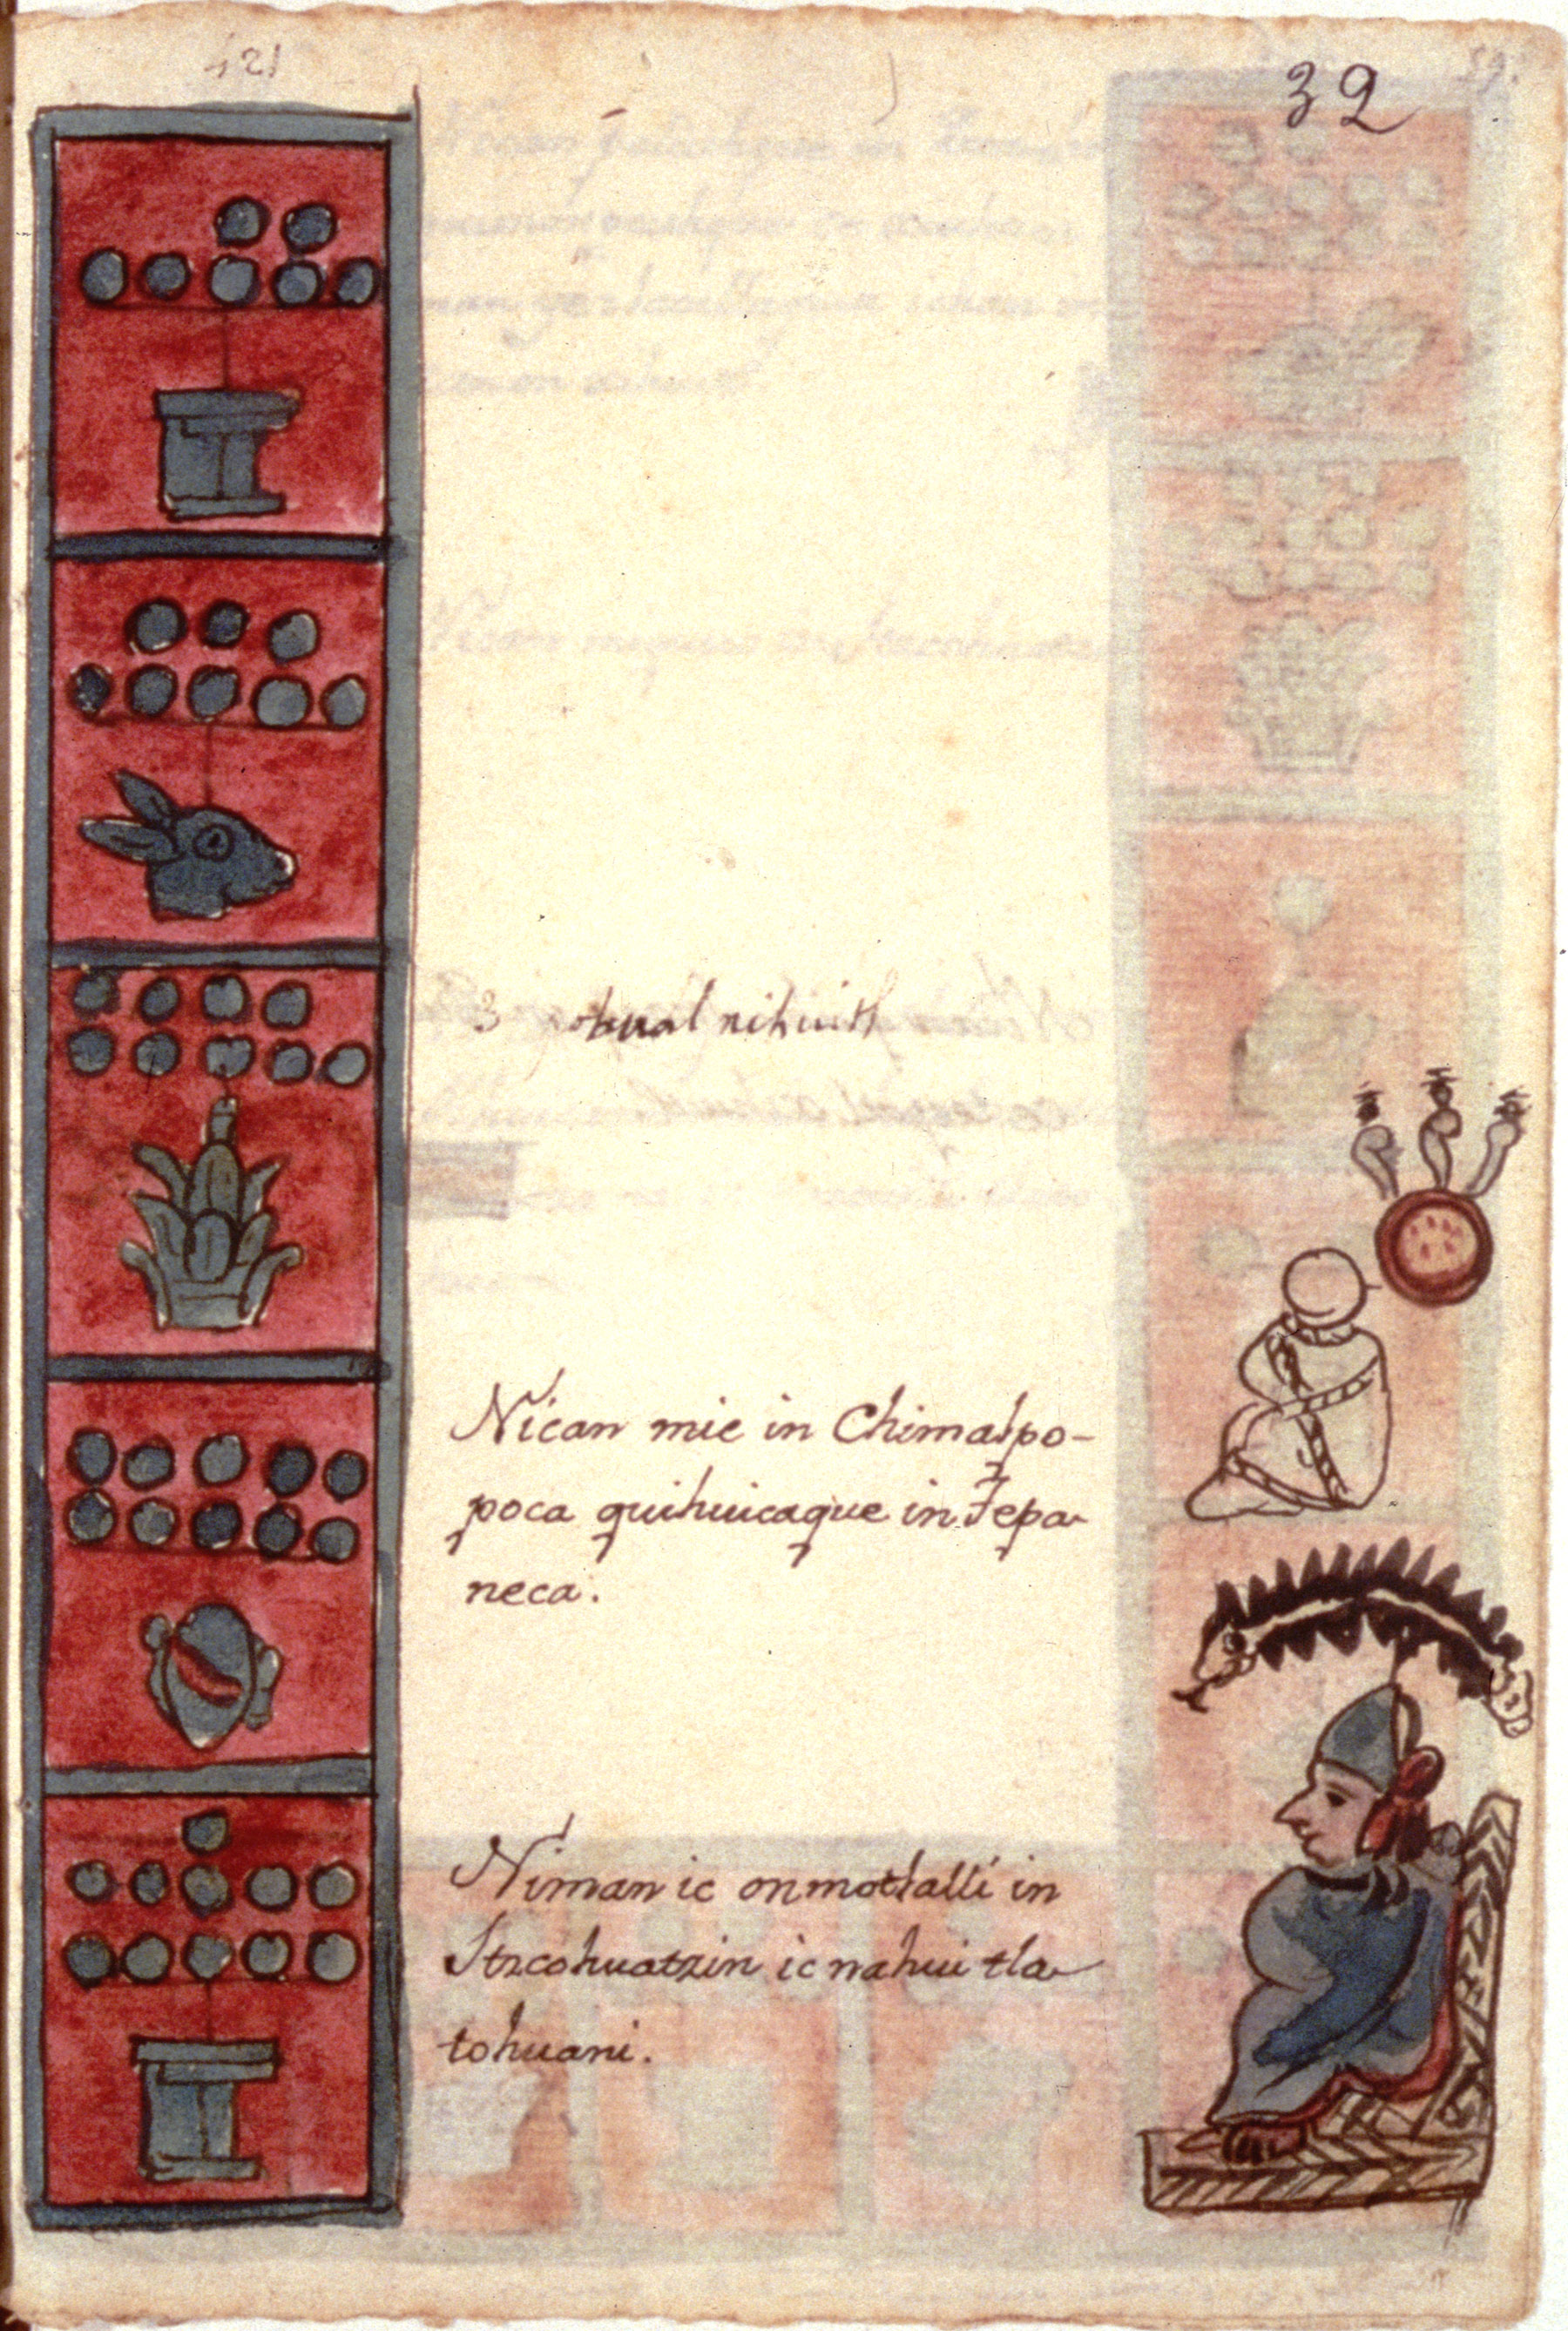 121
32
59.
3 ohual nihuith
Nican mic in Chimalpo-
poca quihuicaque in Tepa-
neca.
Niman ic onmotlalli in
Itzcohuatzin ic nahui tla-
tohuani.